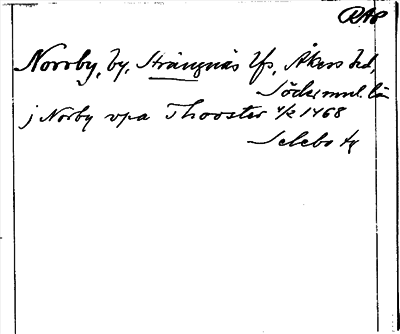 RAP
Norrby, by, Strängnäs lfs, Åkers hd,
Södermnl. län
j Norby vpa Thooster 4/2 1468
Selebo hd